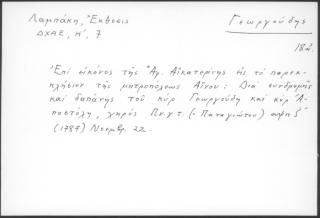 Λαμπάκη, Ἔκθεσις
ΔΧΑΕ, Η', 7
Γεωργούδης
182.
Ἐπὶ εἰκόνος τῆς Ἁγ. Αἰκατερίνης εἰς τὸ παρεκ-
κλήσιον τῆς μητροπόλεως Αἴνου: Διὰ συνδρομῆς
καὶ δαπάνης τοῦ κὺρ Γεωργούδη καὶ κὺρ Ἀ-
ποστόλη, χειρὸς Πν.γ.τ. (= Παναγιώτου) αψπζ
(1787) Νοεμβρ. 22.